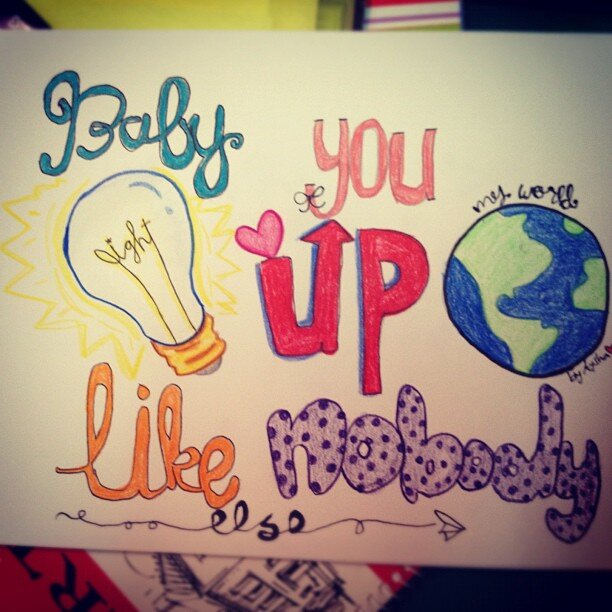 Baby you
light UP my world
like nobody
else
by